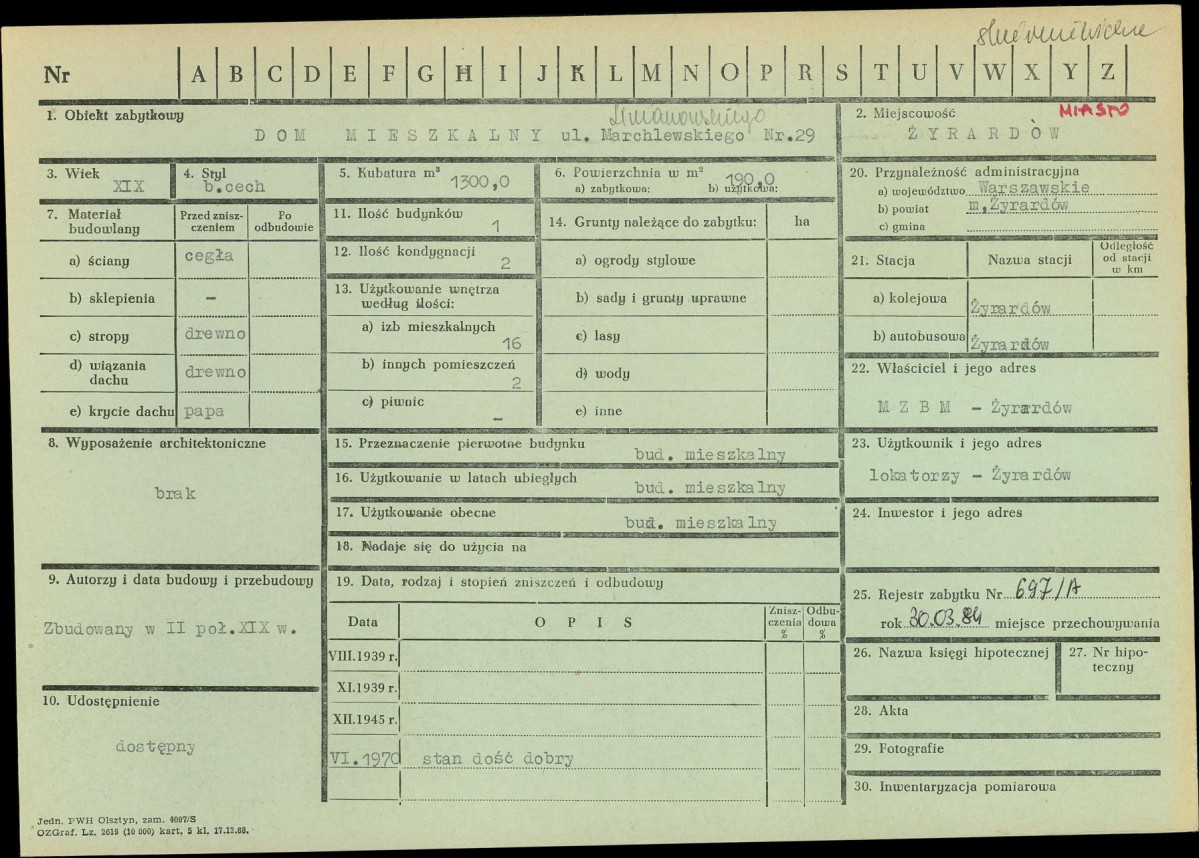 Nr A B C D E F G H I J K L M N O P R S T U V W X Y Z
1. Obiekt zabytkowy
Limanowskiego
DOM MIESZKALNY ul. Marchlewskiego Nr.29
2. Miejscowość MIASTO
ŻYRARDÓW
3. Wiek
XIX
4. Styl
b.cech
5. Kubatura m³
1300,0
6. Powierzchnia w m²
190,0
a) zabytkowa: b) użytkowa:
20. Przynależność administracyjna
a) województwo Warszawskie
b) powiat m,Żyrardów
c) gmina
7. Materiał budowlany
Przed zniszczeniem
Po odbudowie
a) ściany cegła
b) sklepienia –
c) stropy drewno
d) wiązania dachu drewno
e) krycie dachu papa
11. Ilość budynków
1
12. Ilość kondygnacji
2
13. Użytkowanie wnętrza
według ilości:
a) izb mieszkalnych
16
b) innych pomieszczeń
2
c) piwnic
–
14. Grunty należące do zabytku: ha
a) ogrody stylowe
b) sady i grunty uprawne
c) lasy
d) wody
e) inne
21. Stacja Nazwa stacji
Odległość
od stacji
w km
a) kolejowa Żyrardów
b) autobusowa Żyrardów
22. Właściciel i jego adres
M Z B M – Żyrardów
8. Wyposażenie architektoniczne
brak
15. Przeznaczenie pierwotne budynku
bud. mieszkalny
16. Użytkowanie w latach ubiegłych
bud. mieszkalny
17. Użytkowanie obecne
bud. mieszkalny
18. Nadaje się do użycia na
23. Użytkownik i jego adres
lokatorzy – Żyrardów
24. Inwestor i jego adres
9. Autorzy i data budowy i przebudowy
Zbudowany w II poł.XIX w.
19. Data, rodzaj i stopień zniszczeń i odbudowy
Data OPIS
Zniszczenia %
Odbudowa %
VIII.1939 r.
XI.1939 r.
XII.1945 r.
VI.1970 stan dość dobry
25. Rejestr zabytku Nr 697/A
rok 30.03.84 miejsce przechowywania
26. Nazwa księgi hipotecznej
27. Nr hipoteczny
10. Udostępnienie
dostępny
28. Akta
29. Fotografie
30. Inwentaryzacja pomiarowa
Jedn. PWH Olsztyn, zam. 4097/S
OZGraf. Lz. 2619 (10 000) kart, 5 kl, 17.12.68.